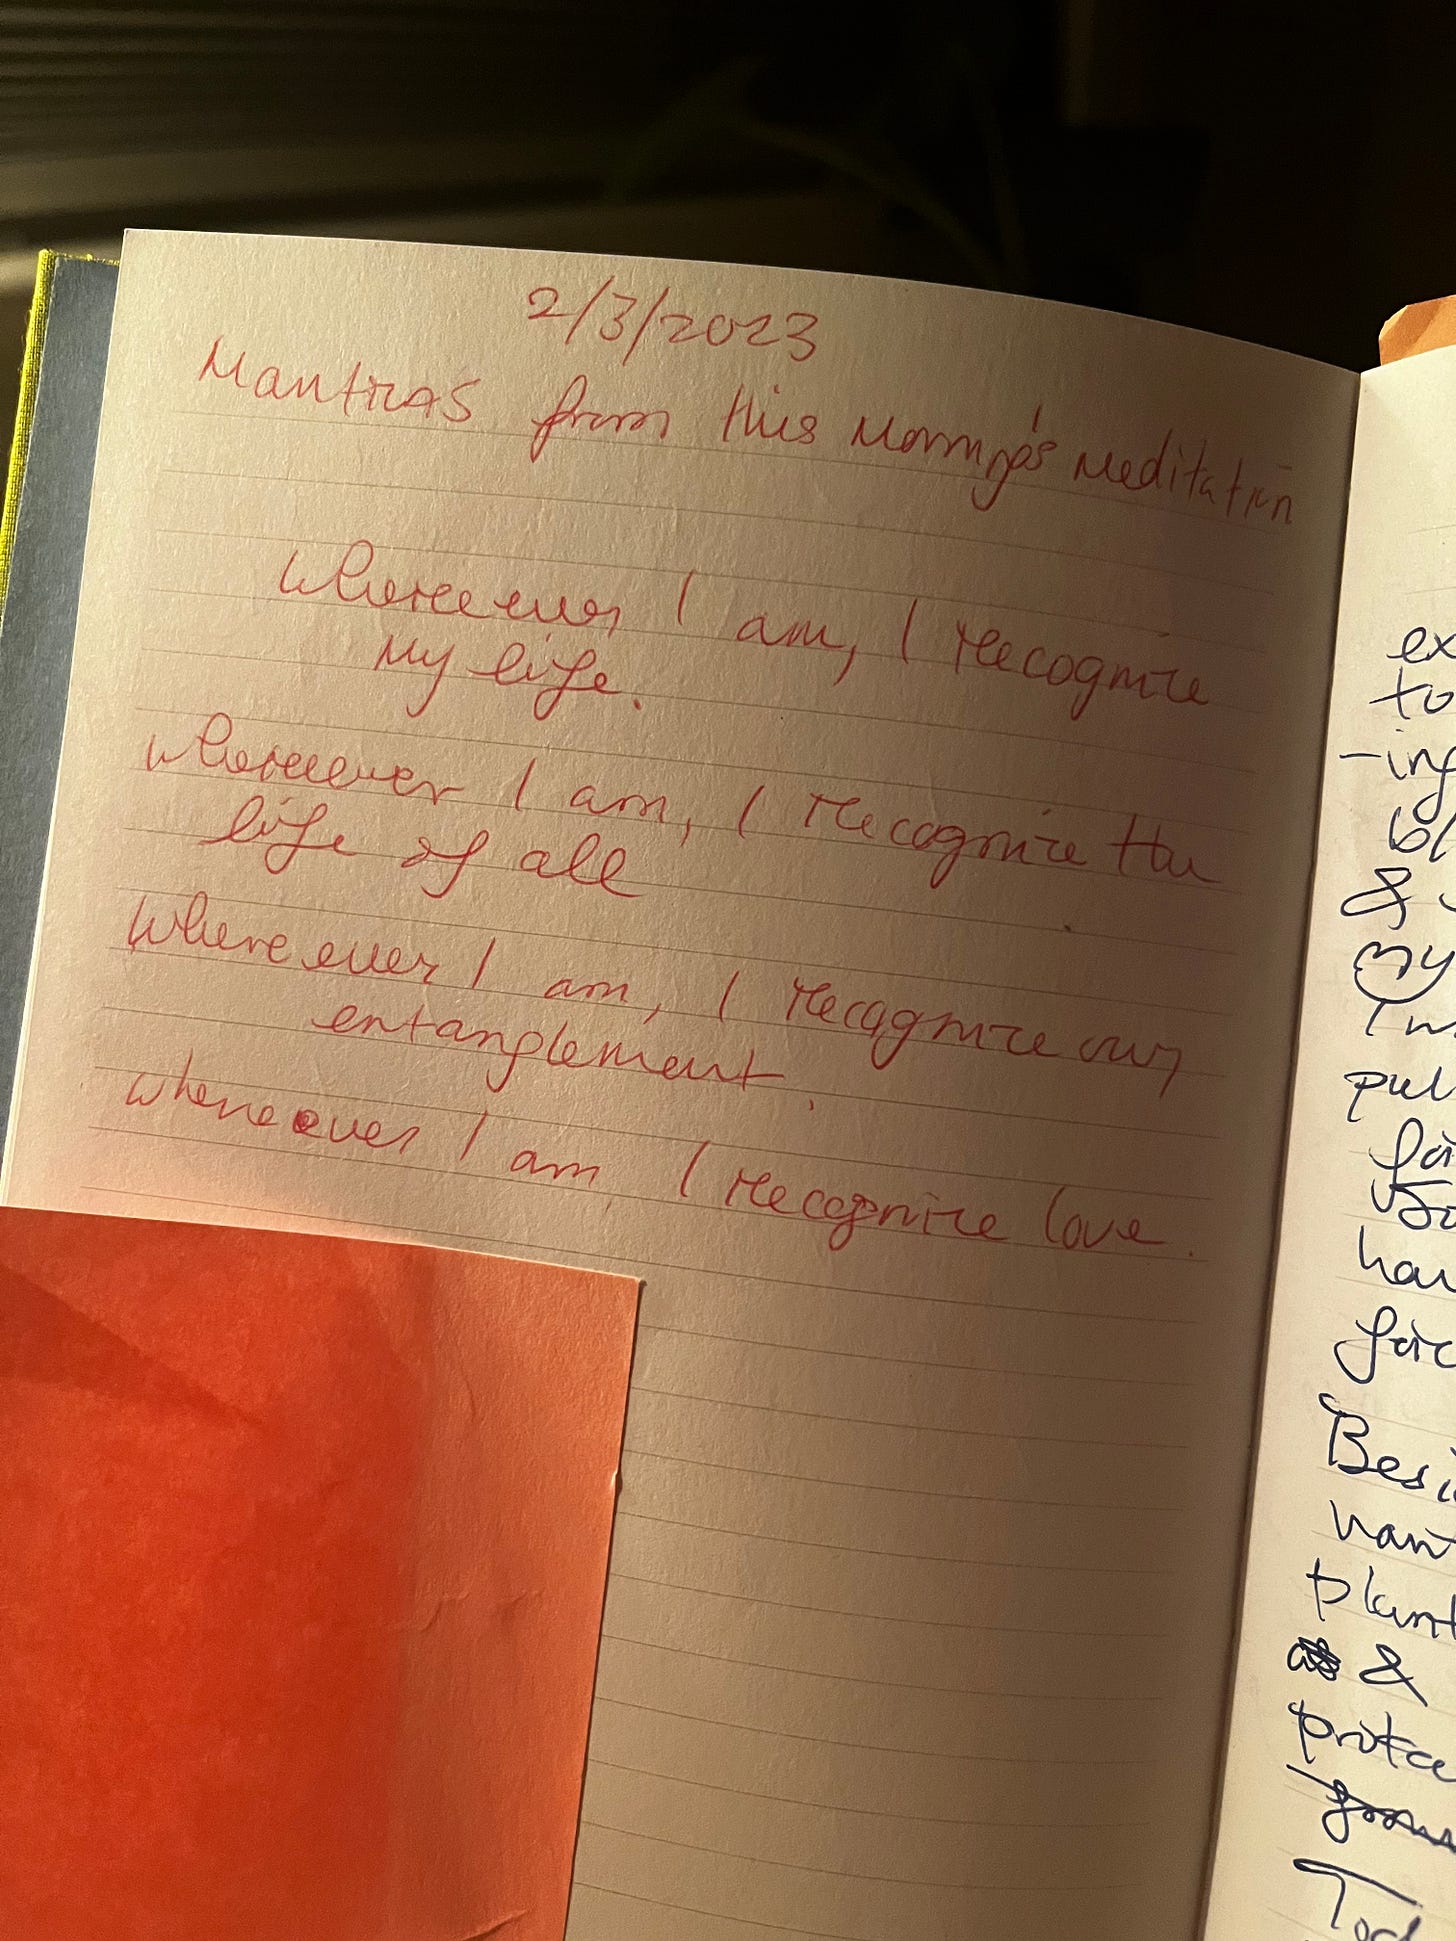 2/3/2023
Mantras from this Morning's Meditation
Whereever I am, I recognize
My life.
Whereever I am, I recognize the
life of all
Whereever I am, I recognize our
entanglement.
Whereever I am, I recognize love.
ex
to
-ing
bl
&
my
I w
pul
foi
Jo
hav
forc
Besi
want
plant
&
prote
Tod